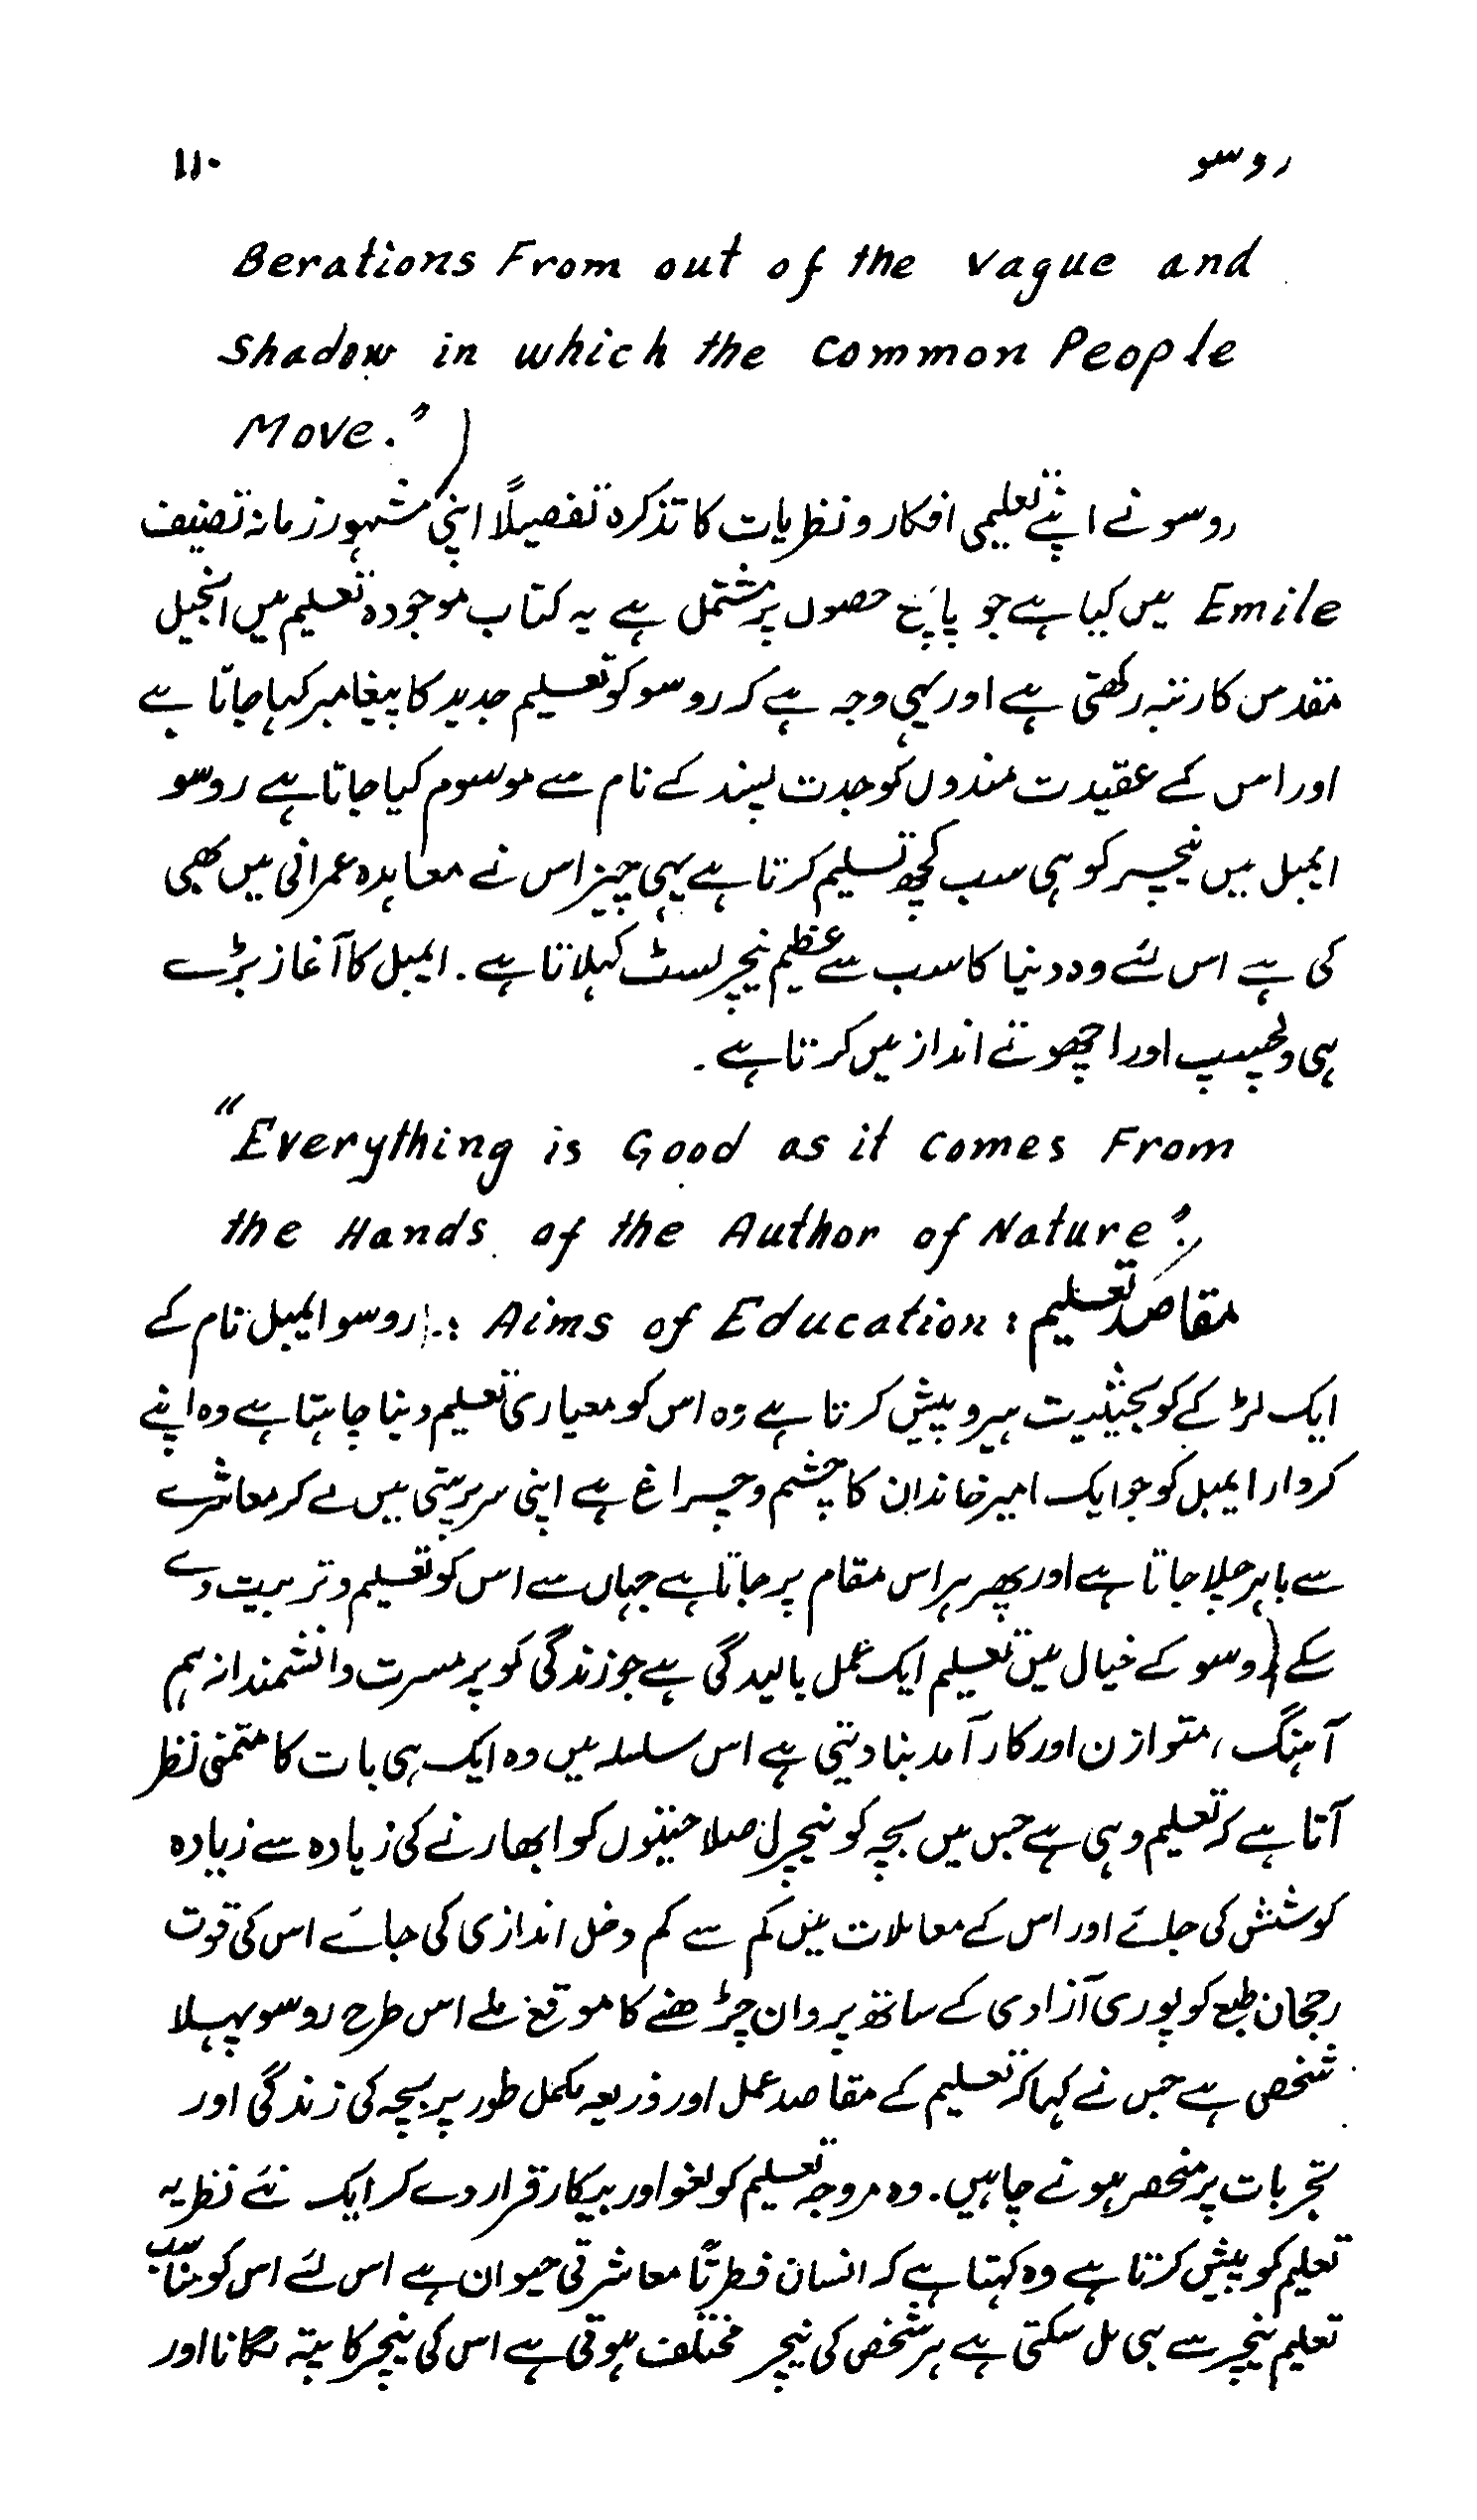 روسو ۱۱۰
Berations From out of the vague and
Shadow in which the common People
Move.")
روسو نے اپنے تعلیمی افکار و نظریات کا تذکرہ تفصیلاً اپنی مشہور زمانہ تصنیف
Emile میں کیا ہے جو پانچ حصوں پر مشتمل ہے یہ کتاب موجودہ تعلیم میں انجیل
مقدس کا رتبہ رکھتی ہے اور یہی وجہ ہے کہ روسو کو تعلیم جدید کا پیغامبر کہا جاتا ہے
اور اس کے عقیدت مندوں کو جدت پسند کے نام سے موسوم کیا جاتا ہے روسو
ایمیل میں نیچر کو ہی سب کچھ تسلیم کرتا ہے یہی چیز اس نے معاہدہ عمرانی میں بھی
کی ہے اس لئے وہ دنیا کا سب سے عظیم نیچرلسٹ کہلاتا ہے۔ ایمیل کا آغاز بڑے
ہی دلچسپ اور اچھوتے انداز میں کرتا ہے۔
"Everything is Good as it comes From
the Hands of the Author of Nature".
مقاصد تعلیم : Aims of Education :۔ روسو ایمیل نام کے
ایک لڑکے کو بحیثیت ہیرو پیش کرتا ہے وہ اس کو معیاری تعلیم دینا چاہتا ہے وہ اپنے
کردار ایمیل کو جو ایک امیر خاندان کا چشم و چراغ ہے اپنی سرپرستی میں لے کر معاشرے
سے باہر چلا جاتا ہے اور پھر ہر اس مقام پر جاتا ہے جہاں سے اس کو تعلیم و تربیت دے
سکے (روسو کے خیال میں تعلیم ایک عمل بالیدگی ہے جو زندگی کو پر مسرت دانشمندانہ ہم
آہنگ، متوازن اور کار آمد بنا دیتی ہے اس سلسلہ میں وہ ایک ہی بات کا متمنی نظر
آتا ہے کہ تعلیم وہی ہے جس میں بچہ کو نیچرل صلاحیتوں کو ابھارنے کی زیادہ سے زیادہ
کوشش کی جائے اور اس کے معاملات میں کم سے کم دخل اندازی کی جائے اس کی قوت
رجحان طبع کو پوری آزادی کے ساتھ پروان چڑھنے کا موقع ملے اس طرح روسو پہلا
شخص ہے جس نے کہا کہ تعلیم کے مقاصد عمل اور ذریعہ مکمل طور پر بچہ کی زندگی اور
تجربات پر منحصر ہونے چاہیں۔ وہ مروجہ تعلیم کو لغو اور بیکار قرار دے کر ایک نئے نظریہ
تعلیم کو پیش کرتا ہے وہ کہتا ہے کہ انسان فطرتاً معاشرتی حیوان ہے اس لئے اس کو مناسب
تعلیم نیچر سے ہی مل سکتی ہے ہر شخص کی نیچر مختلف ہوتی ہے اس کی نیچر کا پتہ لگانا اور